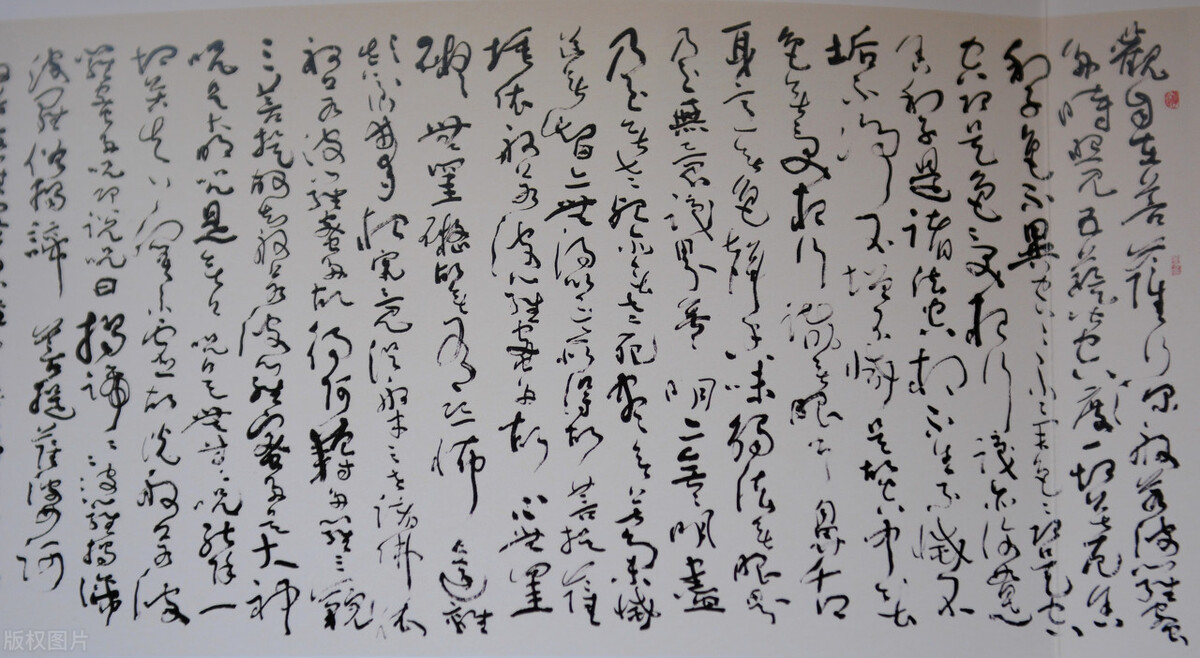 觀自在菩薩行深般若波羅蜜
多時照見五蘊皆空度一切苦厄舍
利子色不異空空不異色色即是空
空即是色受想行識亦復如是
舍利子是諸法空相不生不滅不
垢不淨不增不減是故空中無
色無受想行識無眼耳鼻舌
身意無色聲香味觸法無眼界
乃至無意識界無無明亦無無明盡
乃至無老死亦無老死盡無苦集滅
道無智亦無得以無所得故菩提薩
埵依般若波羅蜜多故心無罣
礙無罣礙故無有恐怖遠離
顛倒夢想究竟涅槃三世諸佛依
般若波羅蜜多故得阿耨多羅三藐
三菩提故知般若波羅蜜多是大神
咒是大明咒是無上咒是無等等咒能除一
切苦真實不虛故說般若波
羅蜜多咒即說咒曰揭諦揭諦波羅揭諦
波羅僧揭諦 菩提薩婆訶
版权图片